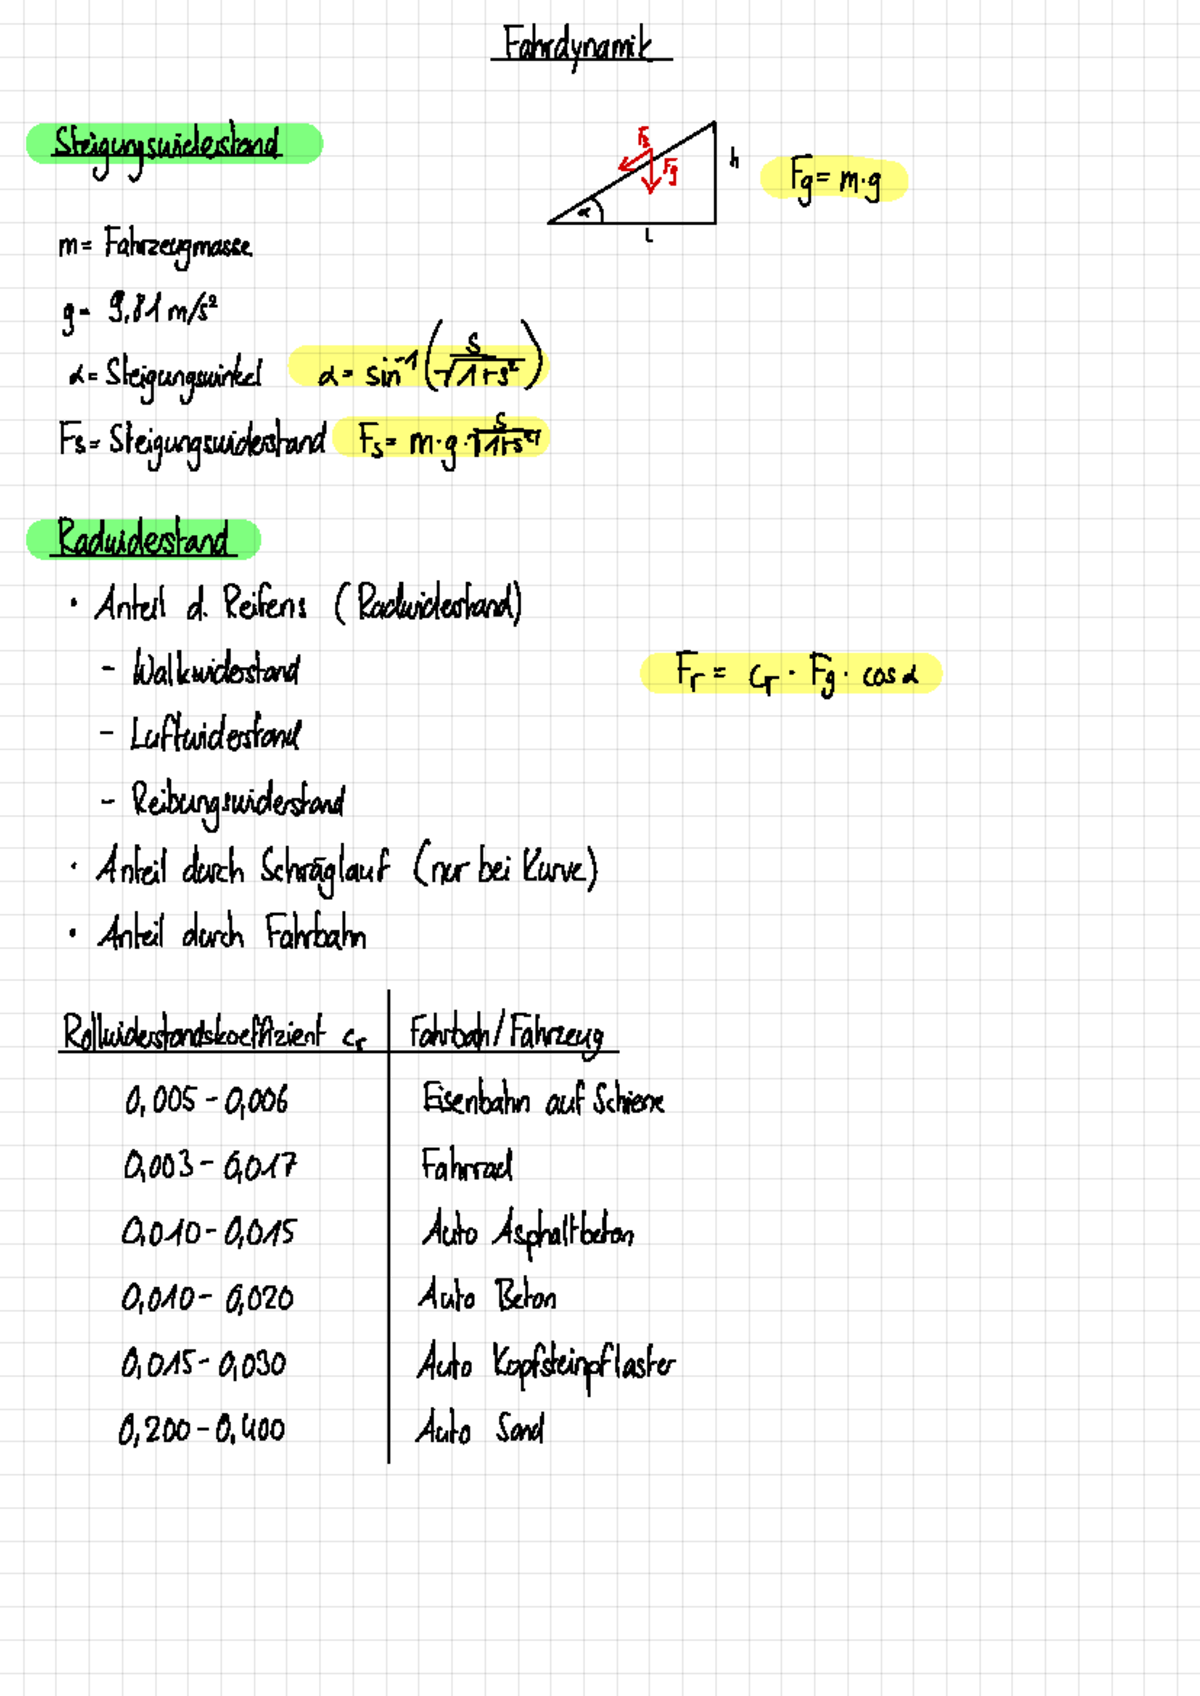 Fahrdynamik
Steigungswiderstand
Fs
Fg
h
α
L
Fg = m·g
m = Fahrzeugmasse
g = 9,81 m/s²
α = Steigungswinkel α = sin⁻¹ (s/√(1+s²))
Fs = Steigungswiderstand Fs = m·g·s/√(1+s²)
Radwiderstand
• Anteil d. Reifens (Radwiderstand)
- Walkwiderstand
Fr = cr · Fg · cos α
- Luftwiderstand
- Reibungswiderstand
• Anteil durch Schräglauf (nur bei Kurve)
• Anteil durch Fahrbahn
Rollwiderstandskoeffizient cr Fahrbah/Fahrzeug
0,005 - 0,006 Eisenbahn auf Schiene
0,003 - 0,017 Fahrrad
0,010 - 0,015 Auto Asphaltbeton
0,010 - 0,020 Auto Beton
0,015 - 0,030 Auto Kopfsteinpflaster
0,200 - 0,400 Auto Sand